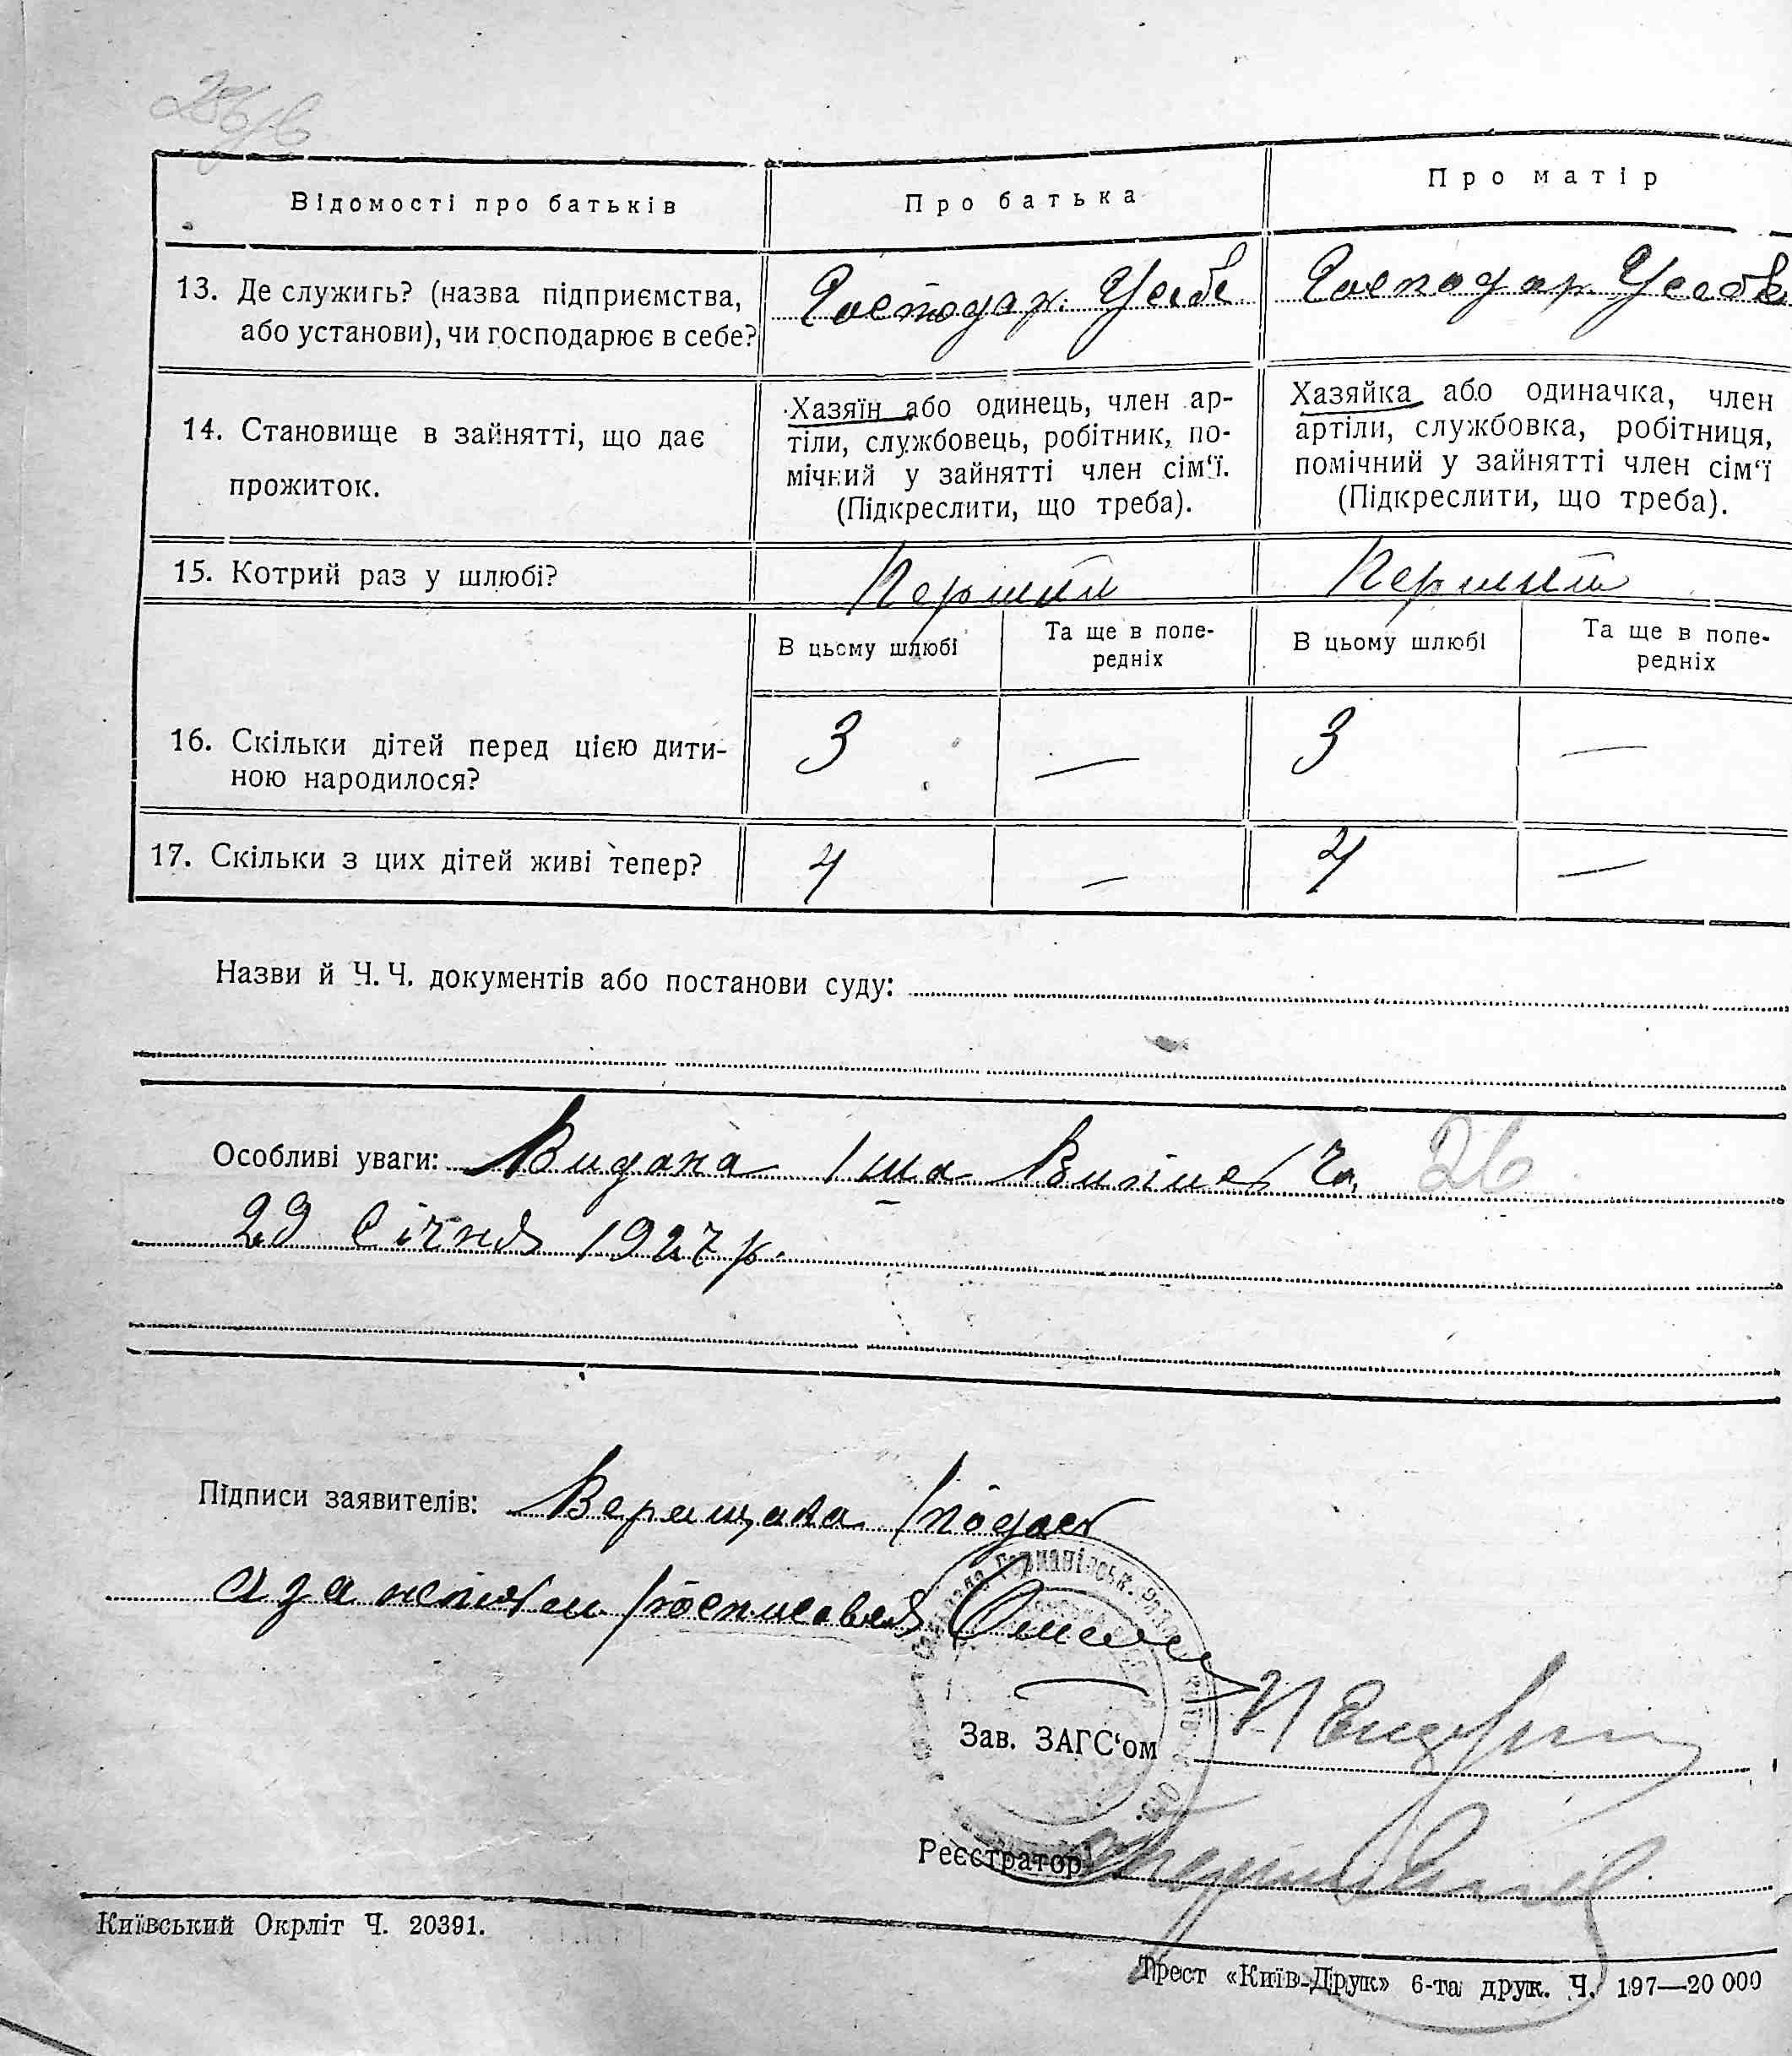 Відомості про батьків
Про батька
Про матір
13. Де служить? (назва підприємства,
або установи), чи господарює в себе?
Господар. Усебе
Господар. Усебе
14. Становище в зайнятті, що дає
прожиток.
Хазяїн або одинець, член ар-
тіли, службовець, робітник, по-
мічний у зайнятті член сім‘ї.
(Підкреслити, що треба).
Хазяйка або одиначка, член
артіли, службовка, робітниця,
помічний у зайнятті член сім‘ї
(Підкреслити, що треба).
15. Котрий раз у шлюбі?
Перший
Перший
В цьому шлюбі
Та ще в попе-
редніх
В цьому шлюбі
Та ще в попе-
редніх
16. Скільки дітей перед цією дити-
ною народилося?
3 — 3 —
17. Скільки з цих дітей живі тепер?
4 — 4 —
Назви й Ч. Ч. документів або постанови суду:
Особливі уваги: Видана 1ша Випись Ч. 26
29 Січня 1927 р.
Підписи заявителів: Верещака
а за
Зав. ЗАГС‘ом
Реєстратор
Київський Окрліт Ч. 20391.
Трест «Київ-Друк» 6-та друк. Ч. 197—20 000